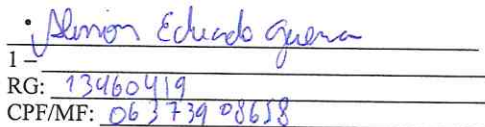 Eduardo Guerra
1 –
RG: 13460419
CPF/MF: 063739 08658